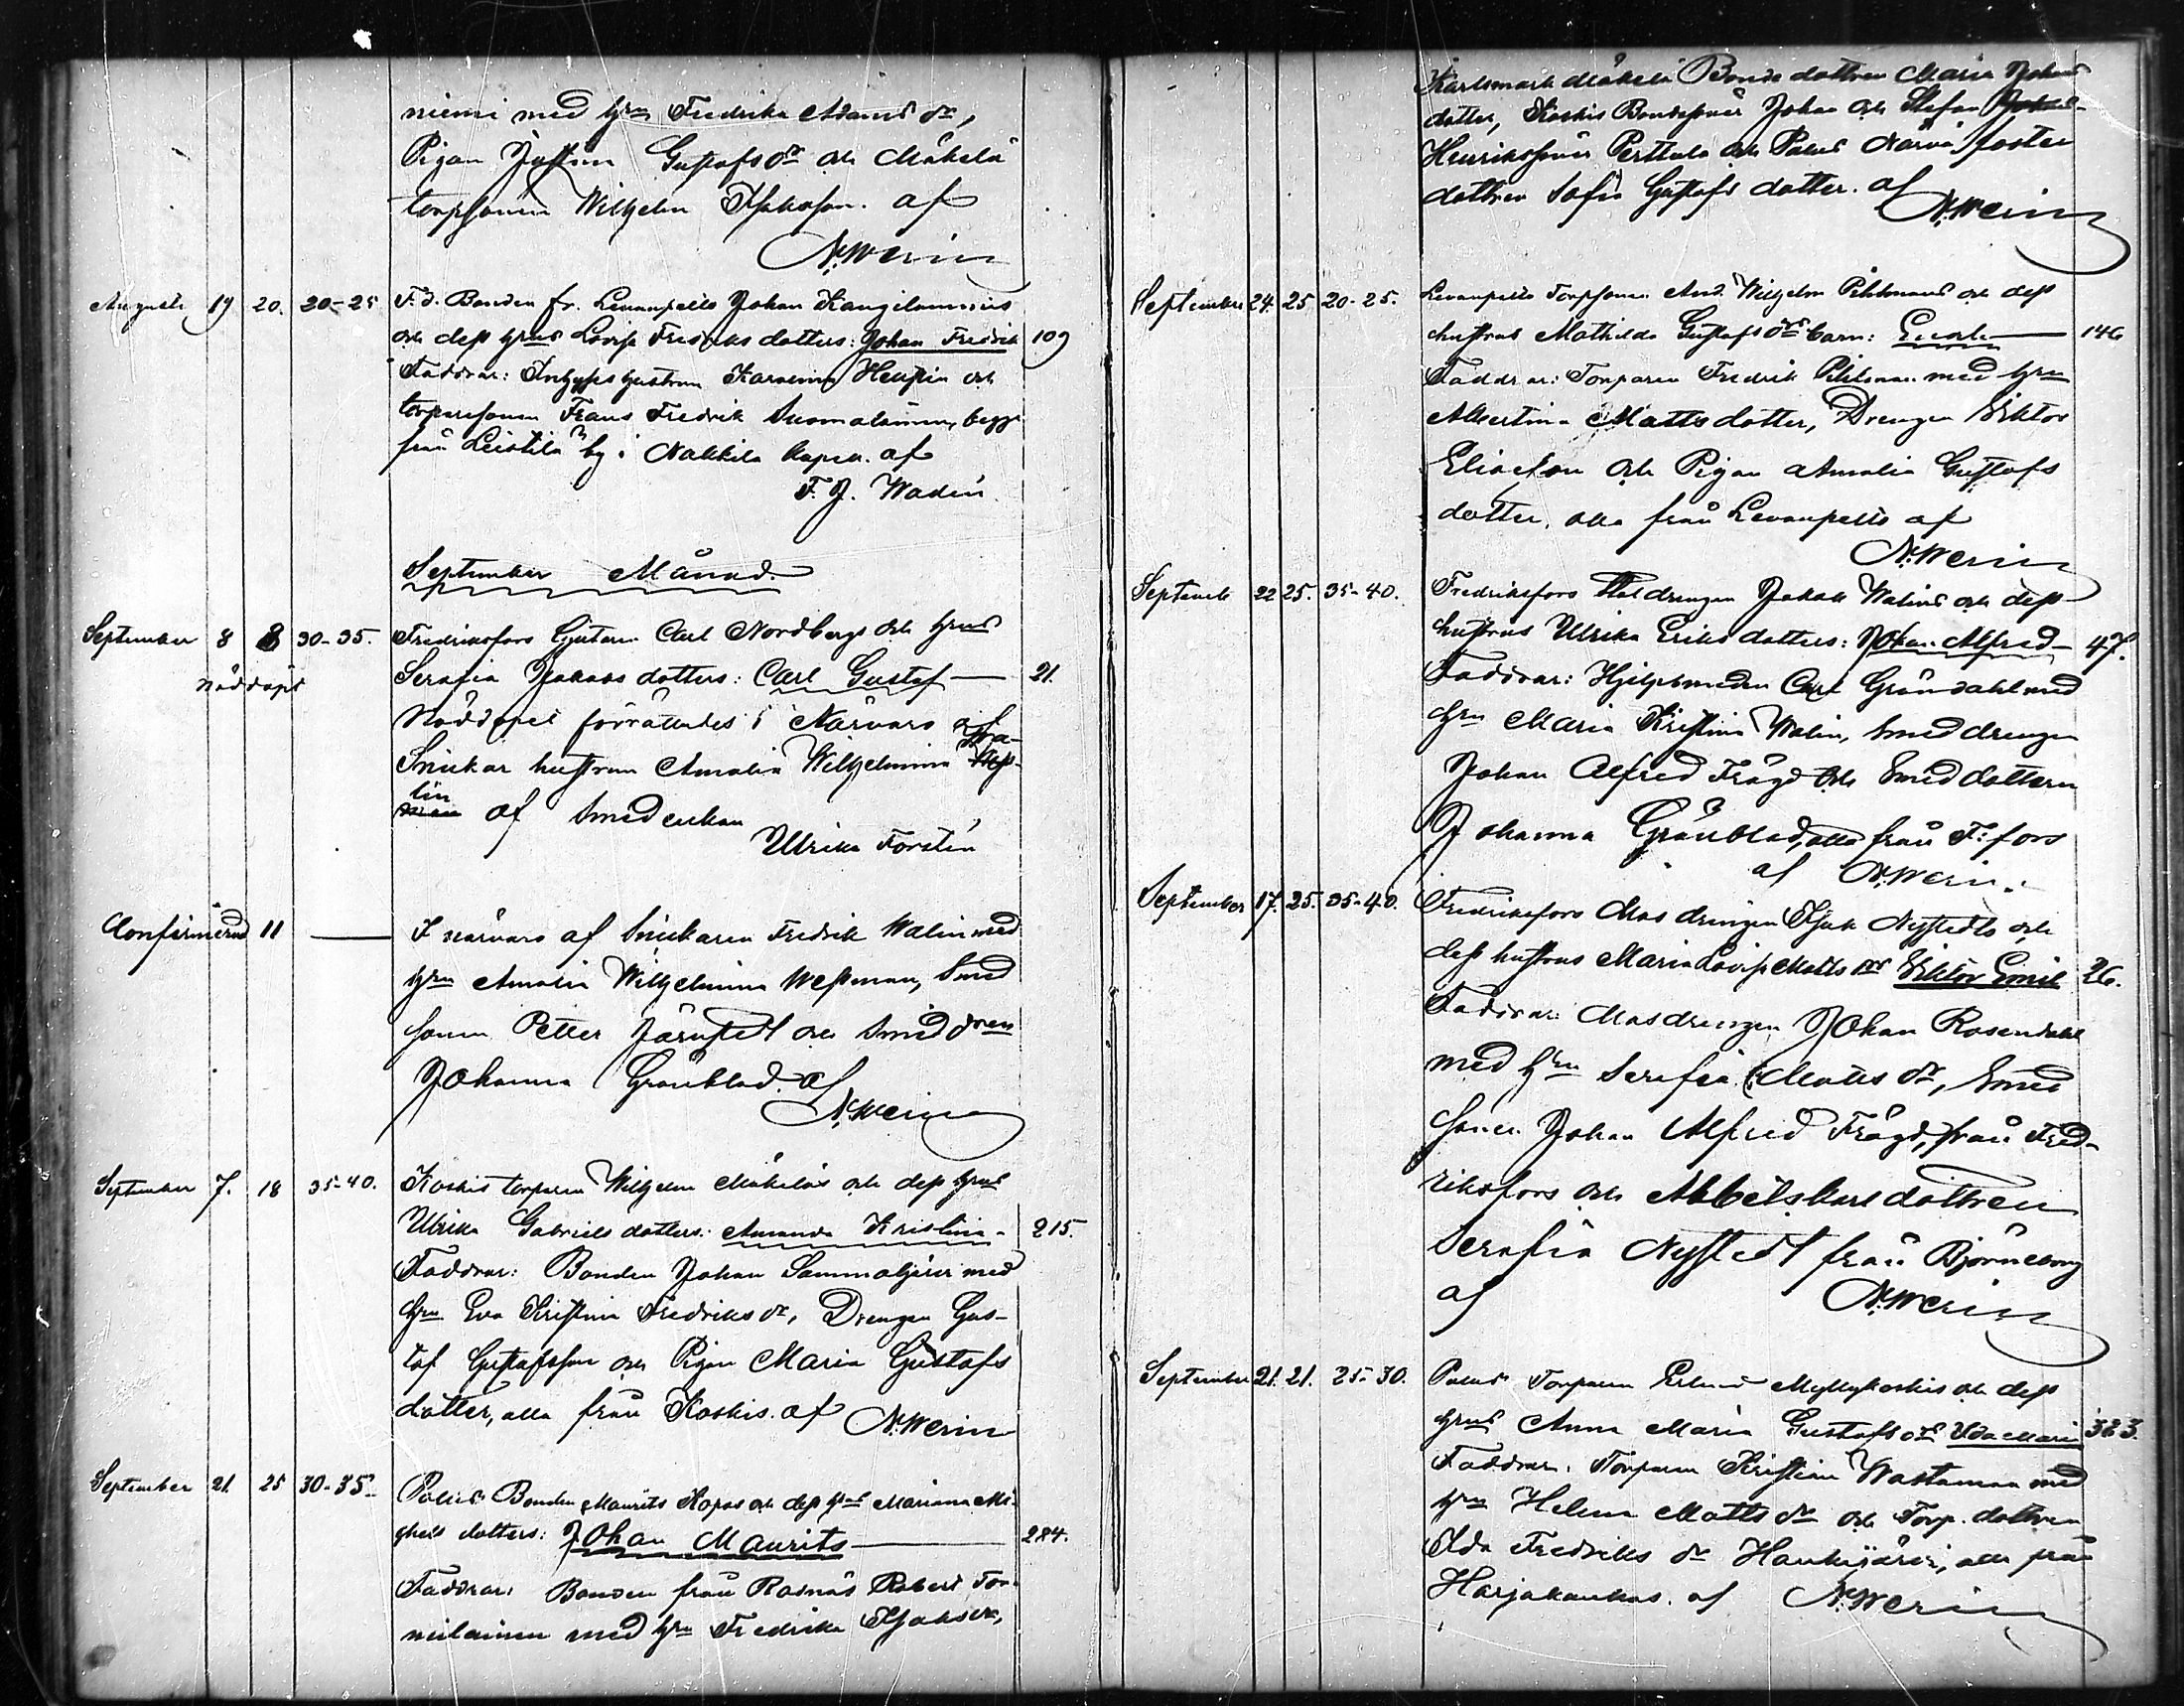 niemi med hrn Fredrika Adams dr,
Pigan Justina Gustafs dr och Mäkelä
torpsonen Wilhelm Isaksson. af
N. Werin
Augusti 19 20. 20-25 F. d. Bonden fr. Levanpelto Johan Kangilanniis
och dess hrus Lovisa Fredriks dotters: Johan Fredrik 109
Faddrar: Inhyses hustrun Karolina Henrika och
torparesonen Frans Fredrik Suomalainen, begge
från Leistilä by i Nakkila kapell. af
F. J. Wadén
September Månad.
September 8 8 30-35. Fredriksfors Gjutare Carl Nordbergs och hrus
Nöddöpt Serafia Jakobs dotters: Carl Gustaf 21.
Nöddopet förrättades i Närvaro af
Snickar hustrun Amalia Wilhelmina Wa-
lin af Smed enkan
Ulrika Forstén
Confirmerad 11 I närvaro af Snickaren Fredrik Walin med
hrn Amalia Wilhelmina Wessman, Smed
sonen Petter Järnstedt och Smed dren
Johanna Grönblad. af
N. Werin
September 7. 18 35-40. Koskis torparen Wilhelm Mäkeläs och dess hrus
Ulrika Gabriels dotters: Amanda Kristina 215.
Faddrar: Bonden Johan Sammaljärvi med
hrn Eva Kristina Fredriks dr, Drengen Gus-
taf Gustafsson och Pigan Maria Gustafs
dotter, alla från Koskis. af N. Werin
September 21. 25 30-35. Palus Bonden Maurits Kopas och dess hrus Mariana Mi-
chels dotters: Johan Maurits 284.
Faddrar: Bonden från Ragnäs Robert Tor-
nilainen med hrn Fredrika Isaks dr,
Karlsmark Mäkelä Bonde dottren Maria Johans
dotter, Koskis Bondesöner Johan och Stefan
Henrikssöner Perttula och Palus Närvä foster
dottren Sofia Gustafs dotter. af
N. Werin
September 24. 25 20-25. Levanpelto Torpsonen And. Wilhelm Pihlmans och dess
hustrus Mathilda Gustafs drs barn: 146
Faddrar: Torparen Fredrik Pihlman med hrn
Albertina Mattsdotter, Drengen Viktor
Eliasson och Pigan Amalia Gustafs
dotter, alla från Levanpelto af
N. Werin
September 22 25. 35-40. Fredriksfors Stal drengen Jakob Walins och dess
hustrus Ulrika Eriks dotters: Johan Alfred 47.
Faddrar: Hjelpsmeden Carl Gröndahl med
hrn Maria Kristina Walin, Smed drengen
Johan Alfred Frågd och Smed dottern
Johanna Grönblad, alla från F:fors
af N. Werin.
September 17. 25. 35-40. Fredriksfors Mas drengen Isak Nystedts och
dess hustrus Maria Lovisa Matts drs Viktor Emil 26.
Faddrar: Masdrengen Johan Rosendahl
med hrn Serafia Matts dr, Smed
sonen Johan Alfred Frågd, från Fred-
riksfors och Arbetskarls dottren
Serafia Nystedt från Björneborg
af N. Werin
September 21. 21. 25-30. Palus Torparen Erland Myllykoskis och dess
hrus Anna Maria Gustafs drs Ida Maria 323.
Faddrar: Torparen Kristian Wastamaa med
hrn Helena Matts dr och Torp. dottren
Ida Fredriks dr Haukijärvi, alla från
Harjakankas. af N. Werin